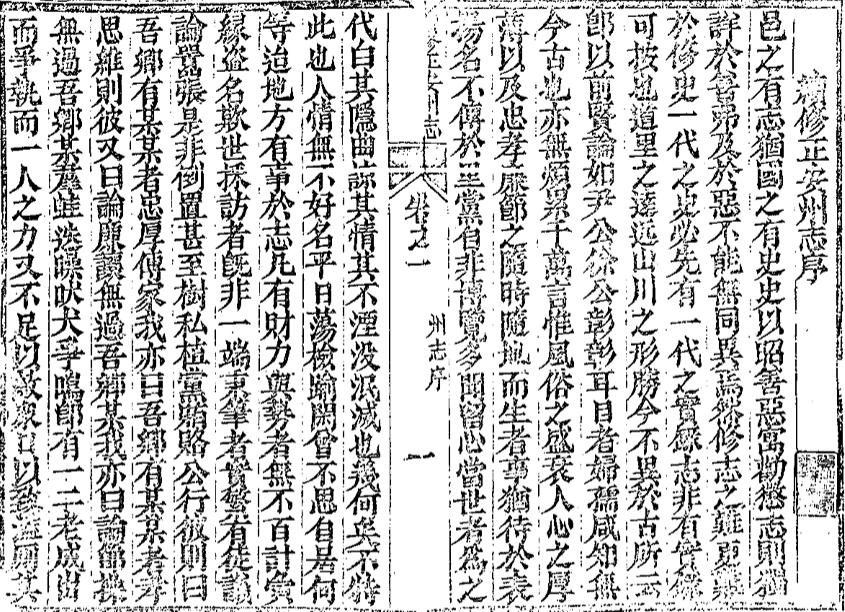 續修正安州志序
邑之有志猶國之有史史以昭善惡寓勸懲志則獨
詳於善第及於惡不能無同異焉然修志之難更難
於修史一代之史必先有一代之實錄志非有實錄
可按也道里之遠近山川之形勝今不異於古所云
即以前賢論如尹公徐公彭彰耳目者婦孺咸知無
今古也亦無煩累千萬言惟風俗之盛衰人心之厚
薄以及忠孝廉節之隨時隨地而生者事猶待於表
揚名不傳於三黨自非博覽多聞留心當世者為之
正安州志
卷之一
州志序
一
代白其隱曲諒其情其不湮没泯滅也幾何矣不特
此也人情無不好名平日蕩檢踰閑曾不思自是何
等迨地方有事於志凡有財力與勢者無不百計夤
緣盗名欺世採訪者旣非一端秉筆者實繁有徒議
論囂張是非倒置甚至樹私植黨賄賂公行彼則曰
吾鄉有某某者忠厚傳家我亦曰吾鄉有某某者孝
思維則彼又曰論廉讓無過吾鄉某我亦曰論節操
無過吾鄉某羣蛙迭噪吠犬爭鳴即有一二老成出
而爭執而一人之力又不足以敵衆口以致滥厠其